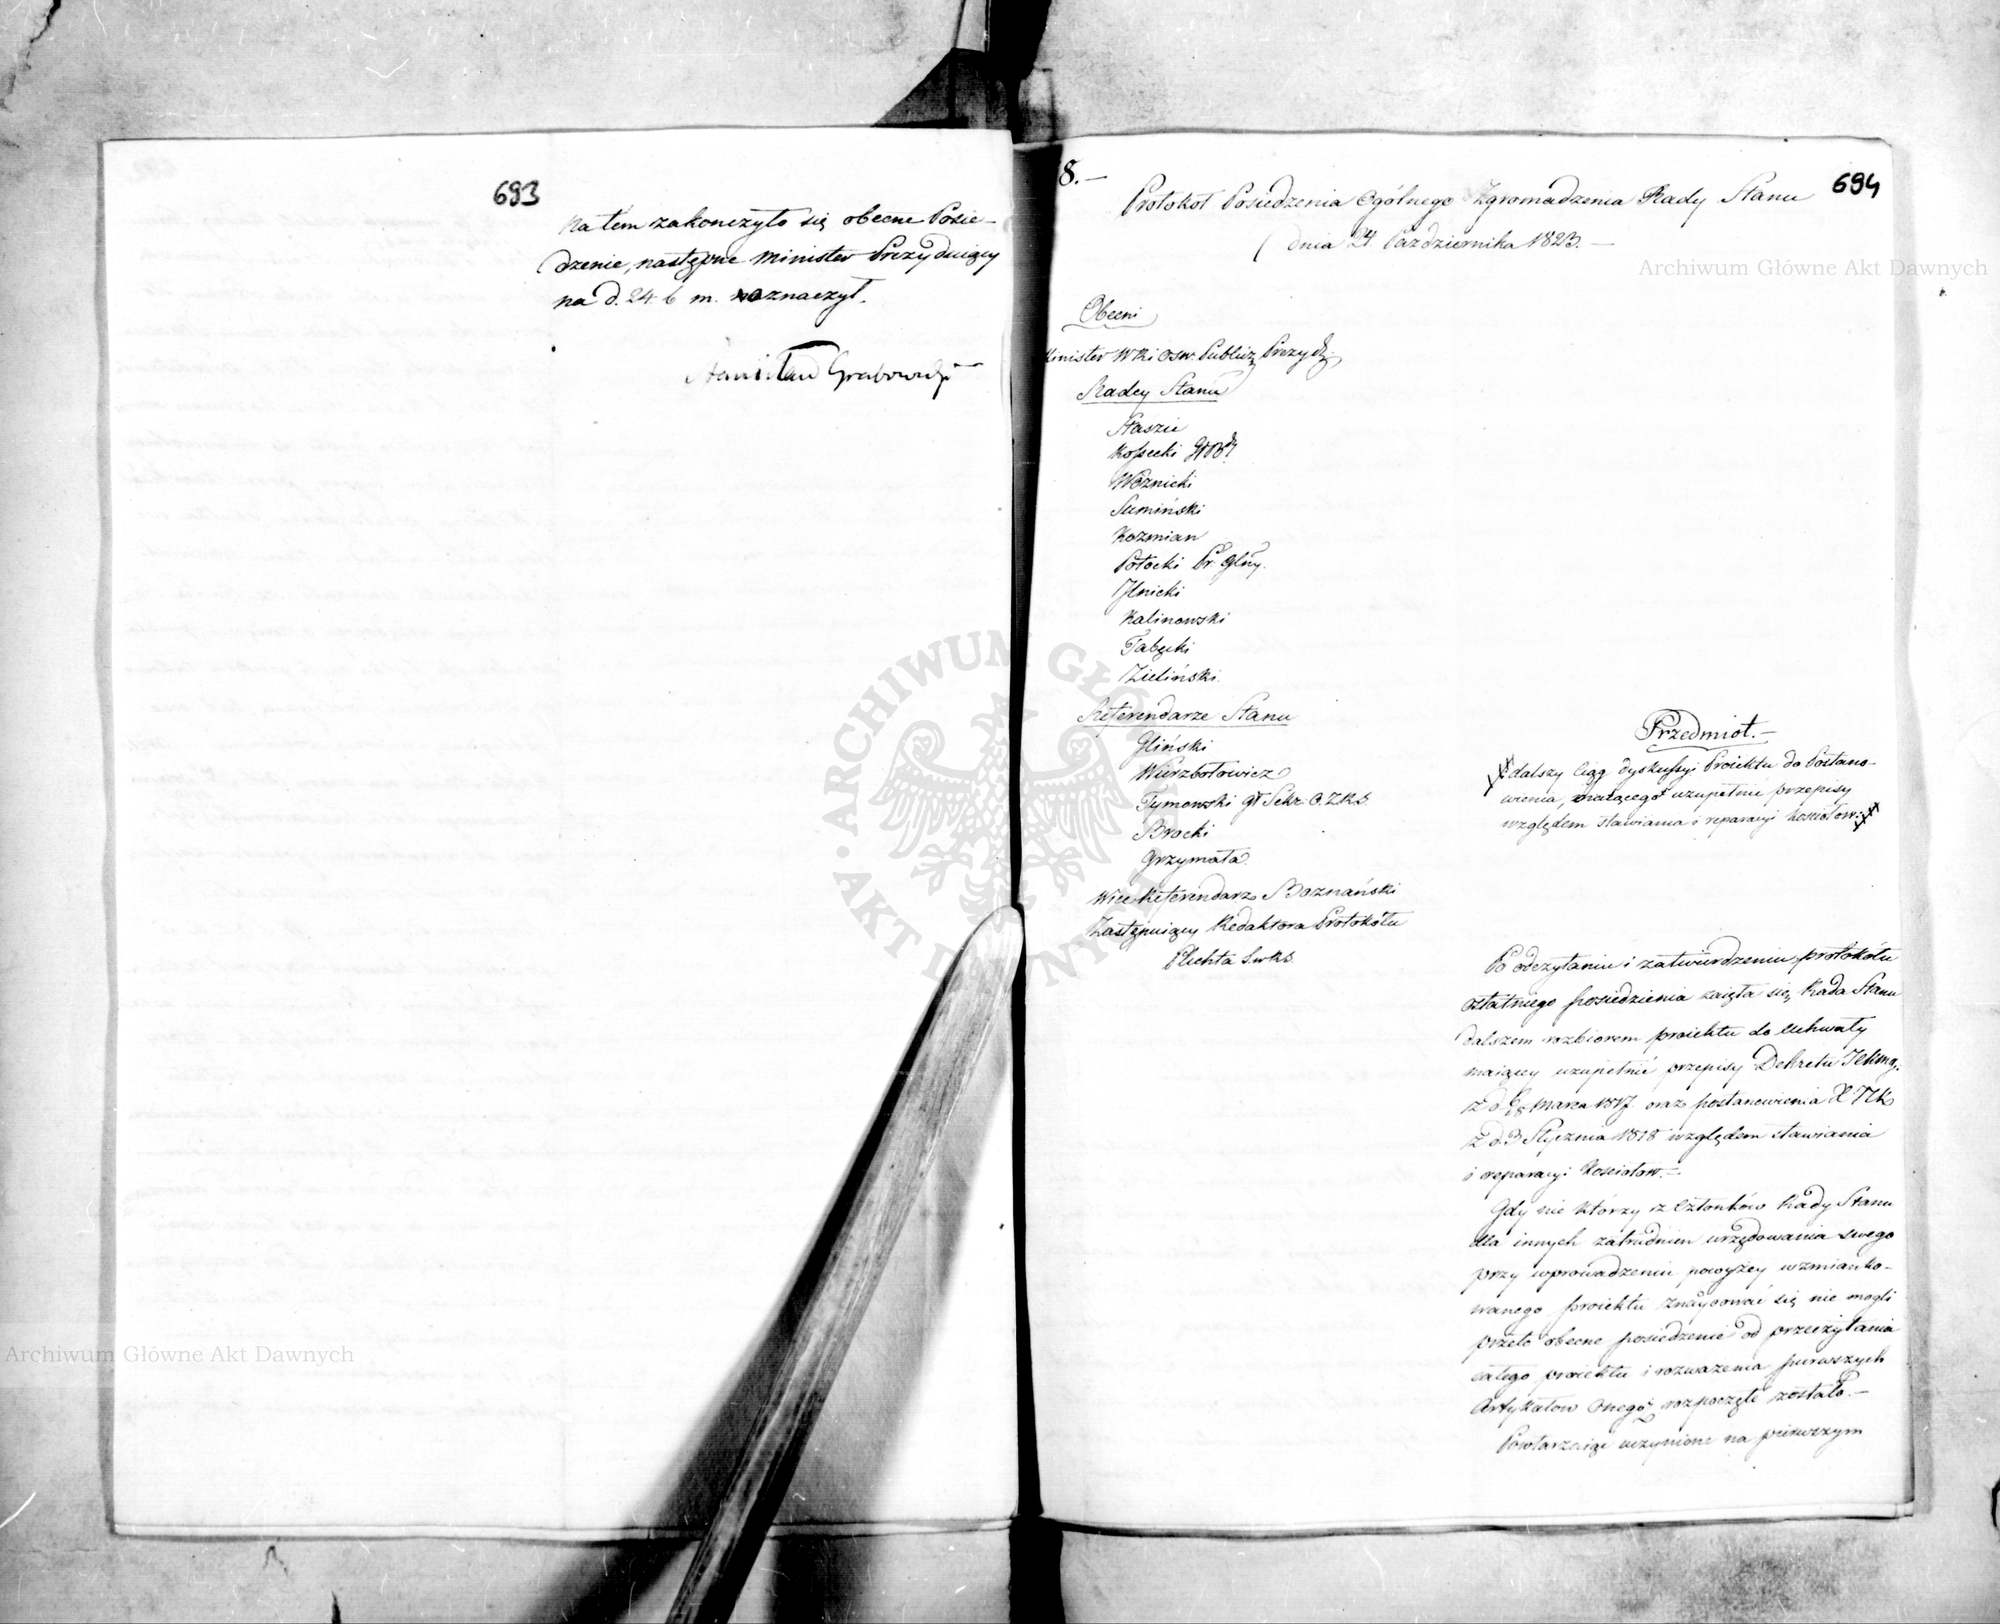 693
Na tém zakonczyło się obecne Posie-
dzenie, następne Minister Prezyduiący
na d. 24. b. m. oznaczył.
Stanisław Grabowski
8.—
694
Protokół Posiedzenia Ogólnego Zgromadzenia Rady Stanu
dnia 24. Października 1823.—
Obecni
Minister WRi Ośw. Publicz. Prezyd:
Radcy Stanu
Staszic
Kossecki
Woźnicki
Sumiński
Kozmian
Potocki Pr. Glny.
Kalinowski
Tabęcki
Zieliński.
Referendarze Stanu
Gliński
Wierzbołowicz
Tymowski Sekr. R.S.
Brocki
Grzymała
Wice Referendarz Boznański
Zastępuiący Redaktora Protokółu
Plichta
Przedmiot.—
dalszy Ciąg dyskussyi Proiektu do Postano-
wienia, maiącego uzupełnić przepisy
względem stawiania i reparacyi kościołow:
Po odczytaniu i zatwierdzeniu protokółu
ostatniego posiedzienia zaięła się Rada Stanu
dalszem rozbiorem proiektu do Uchwały
maiący uzupełnić przepisy Dekretu
z d. 6/18 Marca 1817. oraz postanowienia X NK
z d. 3 Stycznia 1818 względem stawiania
i reparacyi Kościołow.—
Gdy nie którzy z Członków Rady Stanu
dla innych zatrudnien urzędowania swego
przy wprowadzeniu powyżey wzmianko-
wanego proiektu znaydować się nie mogli
przeto obecne posiedzenie od przeczytania
całego proiektu i rozważenia pierwszych
Artykułow onego rozpoczęte zostało.—
Powtarzaiąc uczynione na pierwszym
Archiwum Główne Akt Dawnych
Archiwum Główne Akt Dawnych
ARCHIWUM GŁÓWNE AKT DAWNYCH